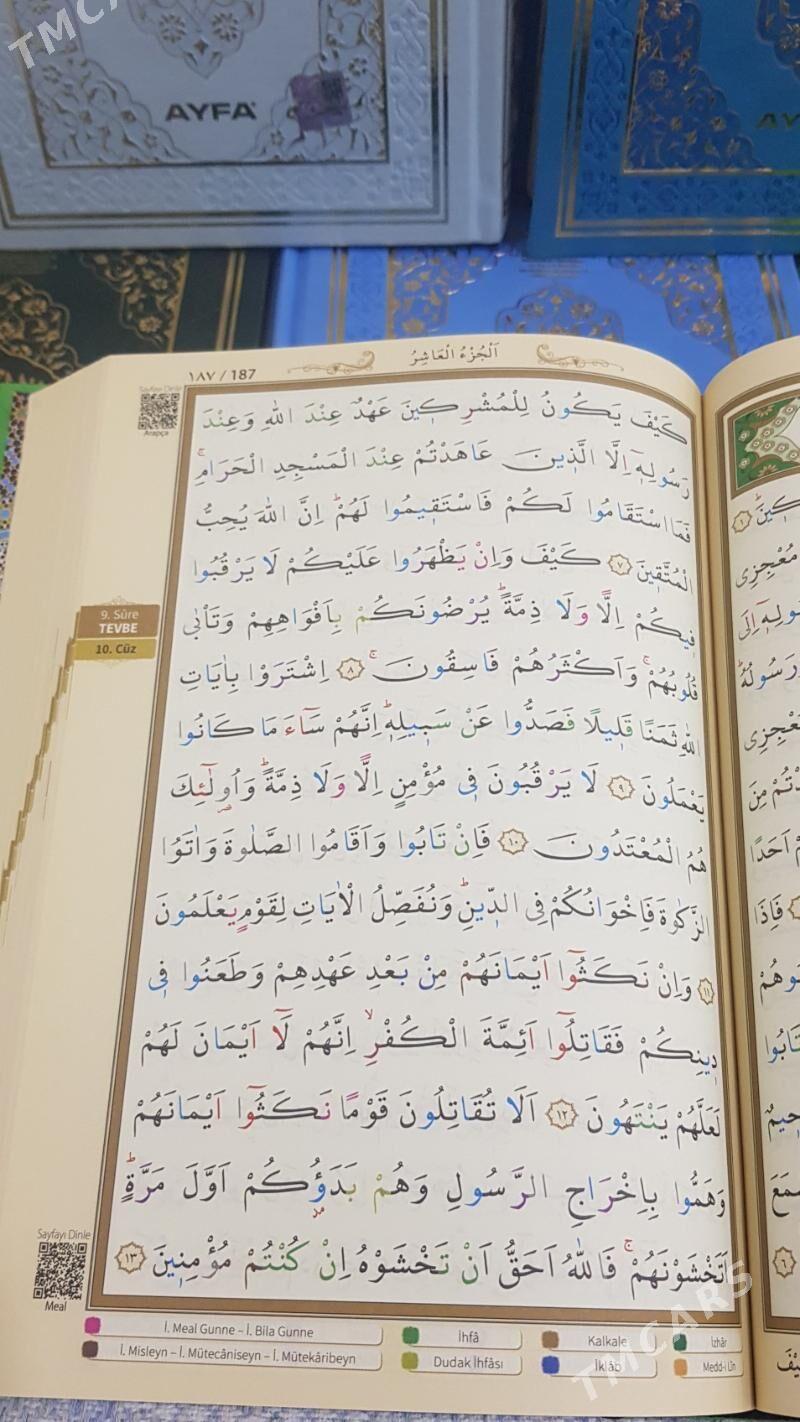 TMCA
AYFA
AY
اَلْجُزْءُ الْعَاشِرُ
١٨٧ / 187
Sayfayı Dinle
Arapça
كَيْفَ يَكُونُ لِلْمُشْرِكٖينَ عَهْدٌ عِنْدَ اللّٰهِ وَعِنْدَ
رَسُولِهٖٓ اِلَّا الَّذٖينَ عَاهَدْتُمْ عِنْدَ الْمَسْجِدِ الْحَرَامِۚ
فَمَا اسْتَقَامُوا لَكُمْ فَاسْتَقٖيمُوا لَهُمْؕ اِنَّ اللّٰهَ يُحِبُّ
الْمُتَّقٖينَ ﴿٧﴾ كَيْفَ وَاِنْ يَظْهَرُوا عَلَيْكُمْ لَا يَرْقُبُوا
فٖيكُمْ اِلًّا وَلَا ذِمَّةًؕ يُرْضُونَكُمْ بِاَفْوَاهِهِمْ وَتَاْبٰى
قُلُوبُهُمْۚ وَاَكْثَرُهُمْ فَاسِقُونَۚ ﴿٨﴾ اِشْتَرَوْا بِاٰيَاتِ
اللّٰهِ ثَمَنًا قَلٖيلًا فَصَدُّوا عَنْ سَبٖيلِهٖؕ اِنَّهُمْ سَٓاءَ مَا كَانُوا
يَعْمَلُونَ ﴿٩﴾ لَا يَرْقُبُونَ فٖى مُؤْمِنٍ اِلًّا وَلَا ذِمَّةًؕ وَاُولٰٓئِكَ
هُمُ الْمُعْتَدُونَ ﴿١٠﴾ فَاِنْ تَابُوا وَاَقَامُوا الصَّلٰوةَ وَاٰتَوُا
الزَّكٰوةَ فَاِخْوَانُكُمْ فِى الدّٖينِؕ وَنُفَصِّلُ الْاٰيَاتِ لِقَوْمٍ يَعْلَمُونَ
﴿١١﴾ وَاِنْ نَكَثُٓوا اَيْمَانَهُمْ مِنْ بَعْدِ عَهْدِهِمْ وَطَعَنُوا فٖى
دٖينِكُمْ فَقَاتِلُٓوا اَئِمَّةَ الْكُفْرِۙ اِنَّهُمْ لَٓا اَيْمَانَ لَهُمْ
لَعَلَّهُمْ يَنْتَهُونَ ﴿١٢﴾ اَلَا تُقَاتِلُونَ قَوْمًا نَكَثُٓوا اَيْمَانَهُمْ
وَهَمُّوا بِاِخْرَاجِ الرَّسُولِ وَهُمْ بَدَؤُ۫كُمْ اَوَّلَ مَرَّةٍؕ
اَتَخْشَوْنَهُمْۚ فَاللّٰهُ اَحَقُّ اَنْ تَخْشَوْهُ اِنْ كُنْتُمْ مُؤْمِنٖينَ ﴿١٣﴾
9. Sûre
TEVBE
10. Cüz
Sayfayı Dinle
Meal
İ. Meal Gunne – İ. Bila Gunne
İhfâ
Kalkale
İzhâr
İ. Misleyn – İ. Mütecâniseyn – İ. Mütekâribeyn
Dudak İhfâsı
İklâb
Medd-i Ûn
TMCARS